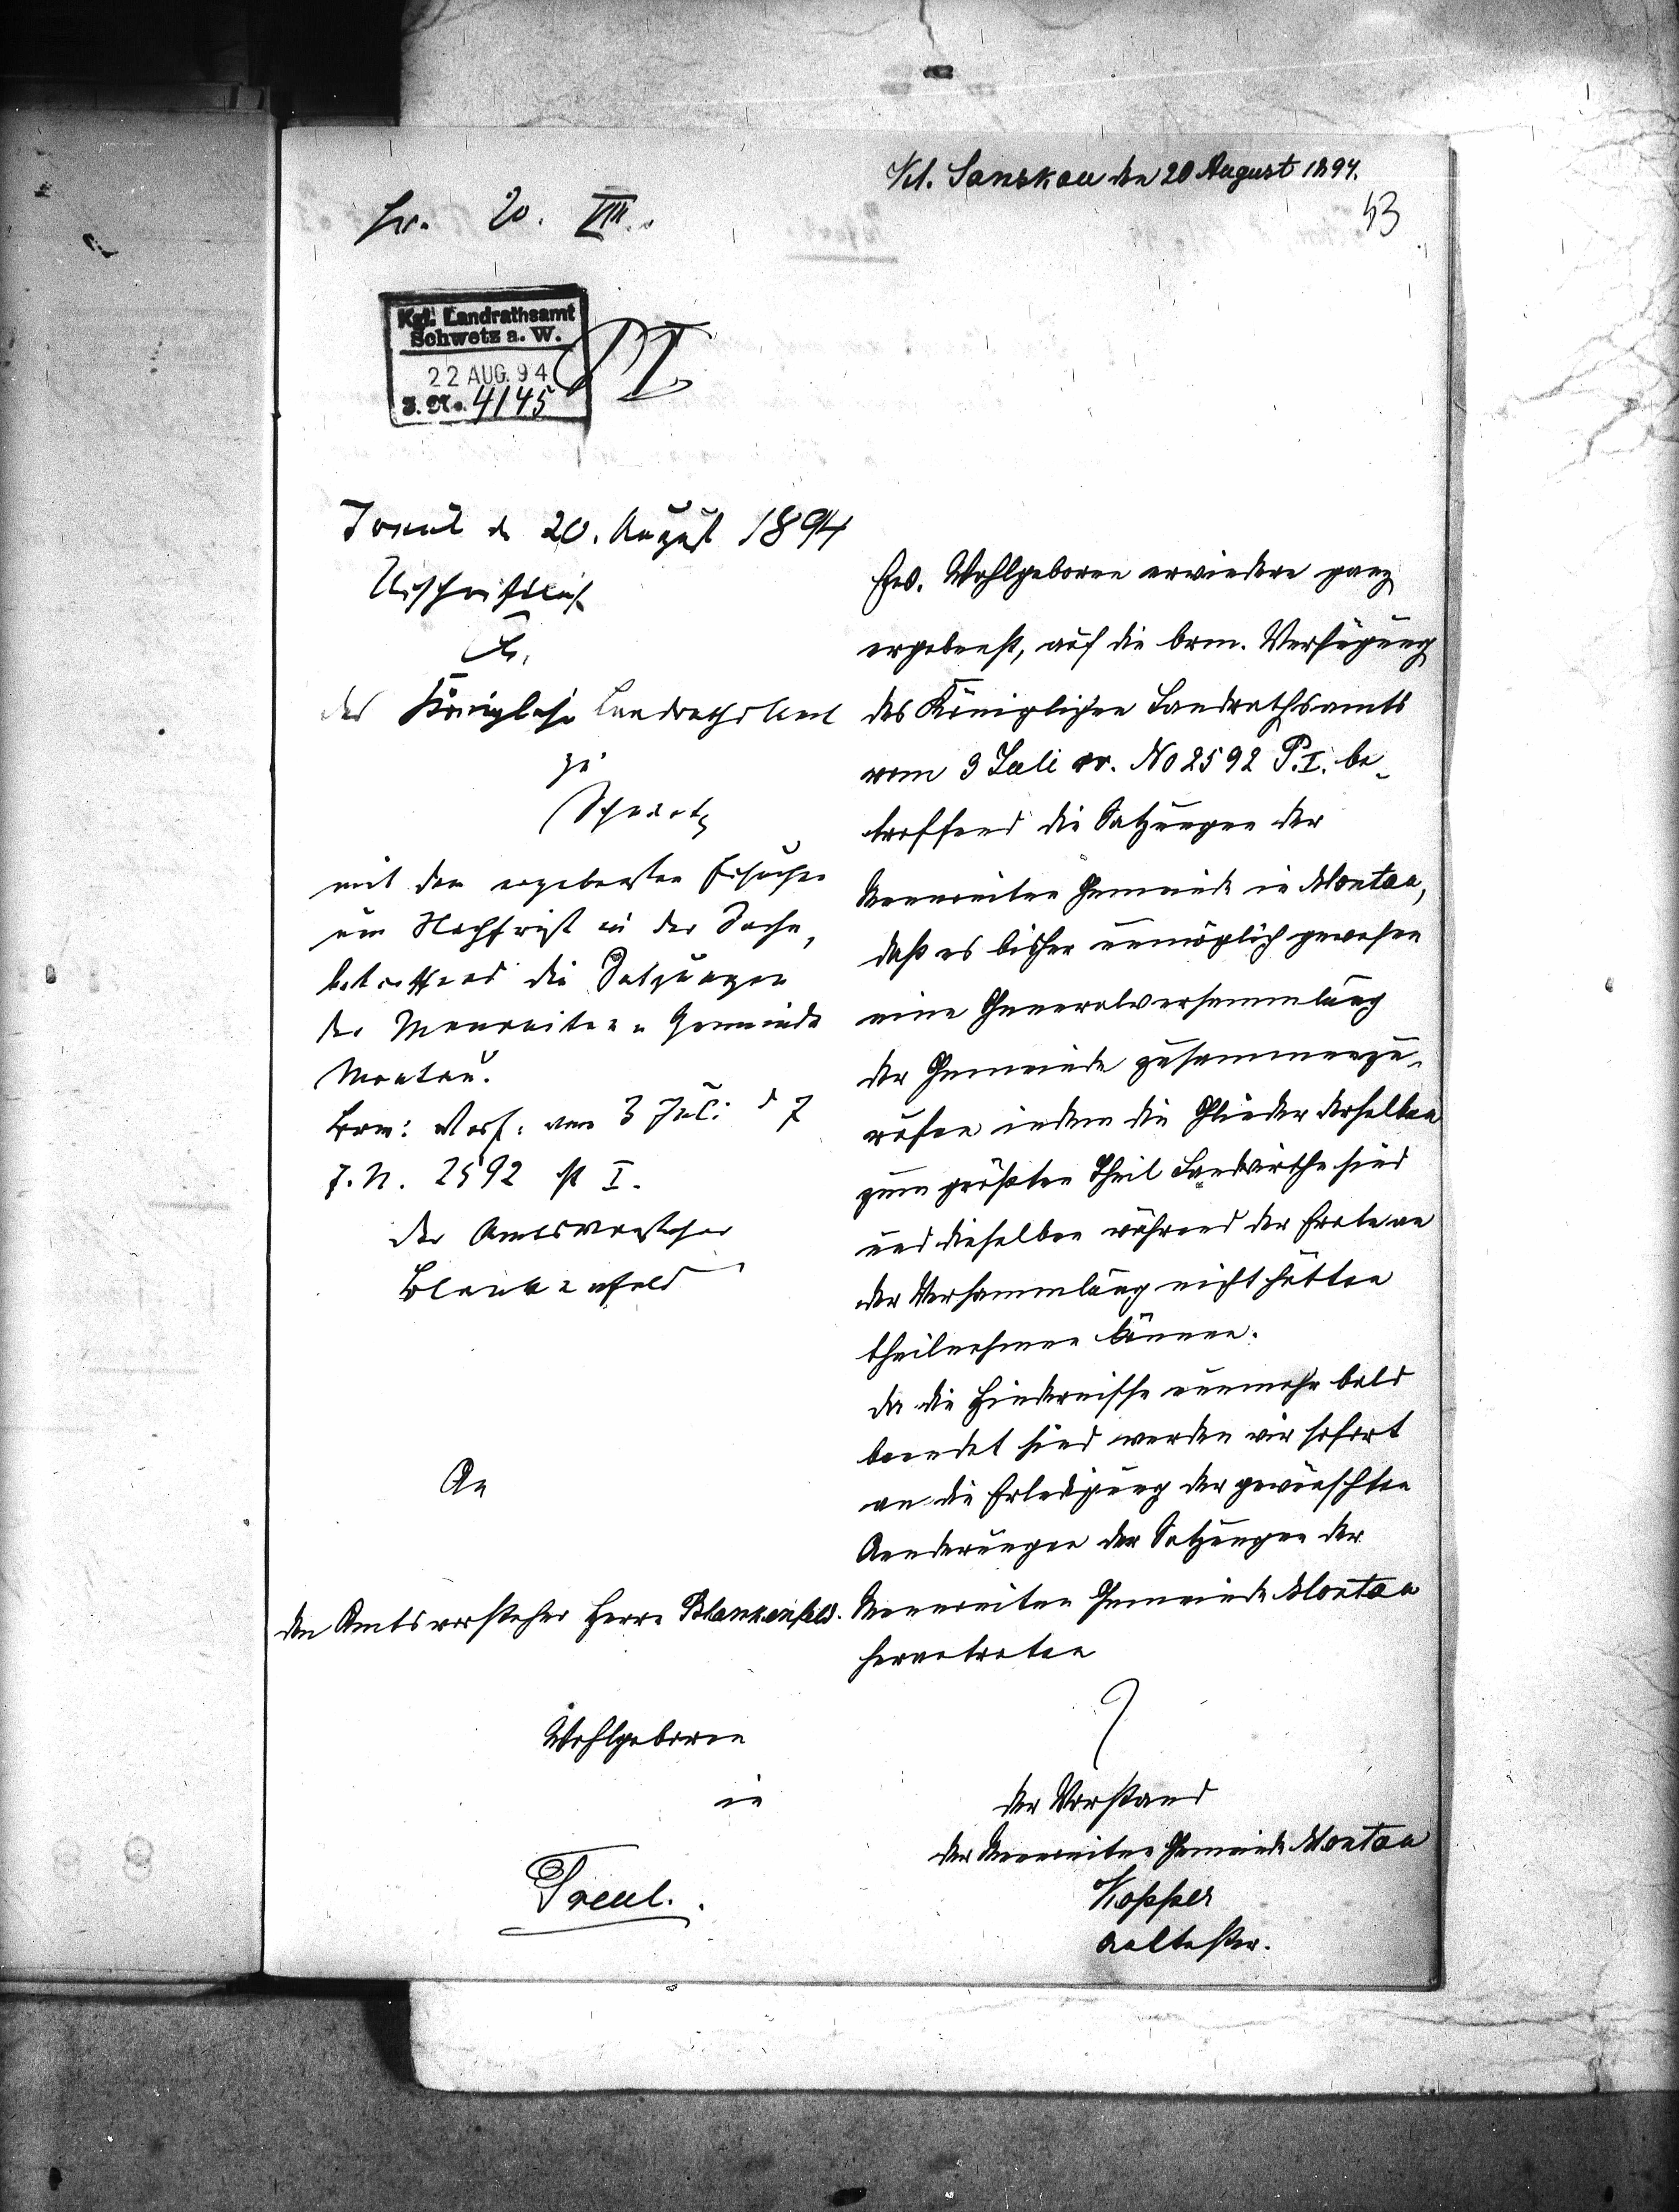 Kl. Sanskau den 20 August 1894.
53
pr. 20. VIII.
Kgl. Landrathsamt
Schwetz a. W.
22 AUG. 94
J. No. 4145
P I
Treul d. 20. August 1894
Urschriftlich
An
das Königliche Landraths Amt
zu
Schwetz
mit dem ergebensten Ersuchen
um Nachfrist in der Sache,
betreffend die Satzungen
der Mennoniten Gemeinde
Montau.
brm: Verf: vom 3 Juli d J
J. N. 2592 P I.
Der Amtsvorsteher
Blankenfeld
Ew. Wohlgeboren erwiedere ganz
ergebenst, auf die brm. Verfügung
des Königlichen Landrathsamts
vom 3 Juli cr. No 2592 P. I. be-
treffend die Satzungen der
Mennoniten Gemeinde in Montau,
daß es bisher unmöglich gewesen
eine Generalversammlung
der Gemeinde zusammenzu-
rufen indem die Glieder derselben
zum größten Theil Landwirthe sind
und dieselben während der Ernte an
der Versammlung nicht hätten
theilnehmen können.
Da die Hindernisse nunmehr bald
beendet sind werden wir sofort
an die Erledigung der gewünschten
Aenderungen der Satzungen der
Mennoniten Gemeinde Montau
herantreten
Der Vorstand
der Mennoniten Gemeinde Montau
Kopper
Aeltester.
An
den Amtsvorsteher Herrn Blankenfeld.
Wohlgeboren
in
Treul.